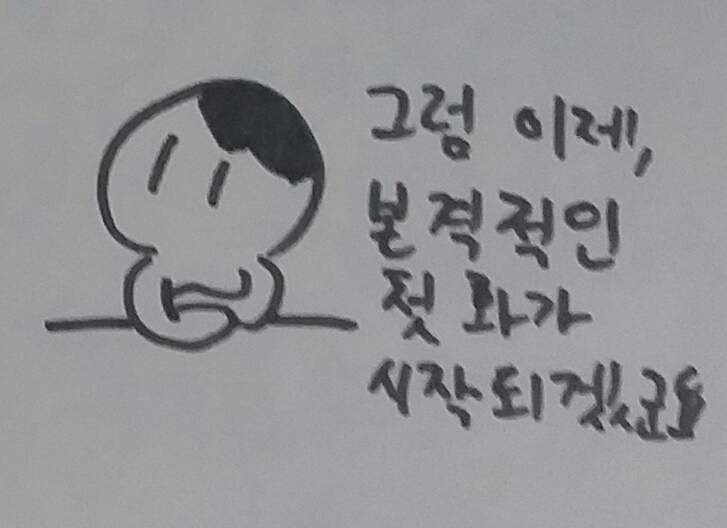 그럼 이제,
본격적인
첫 화가
시작되겠군요